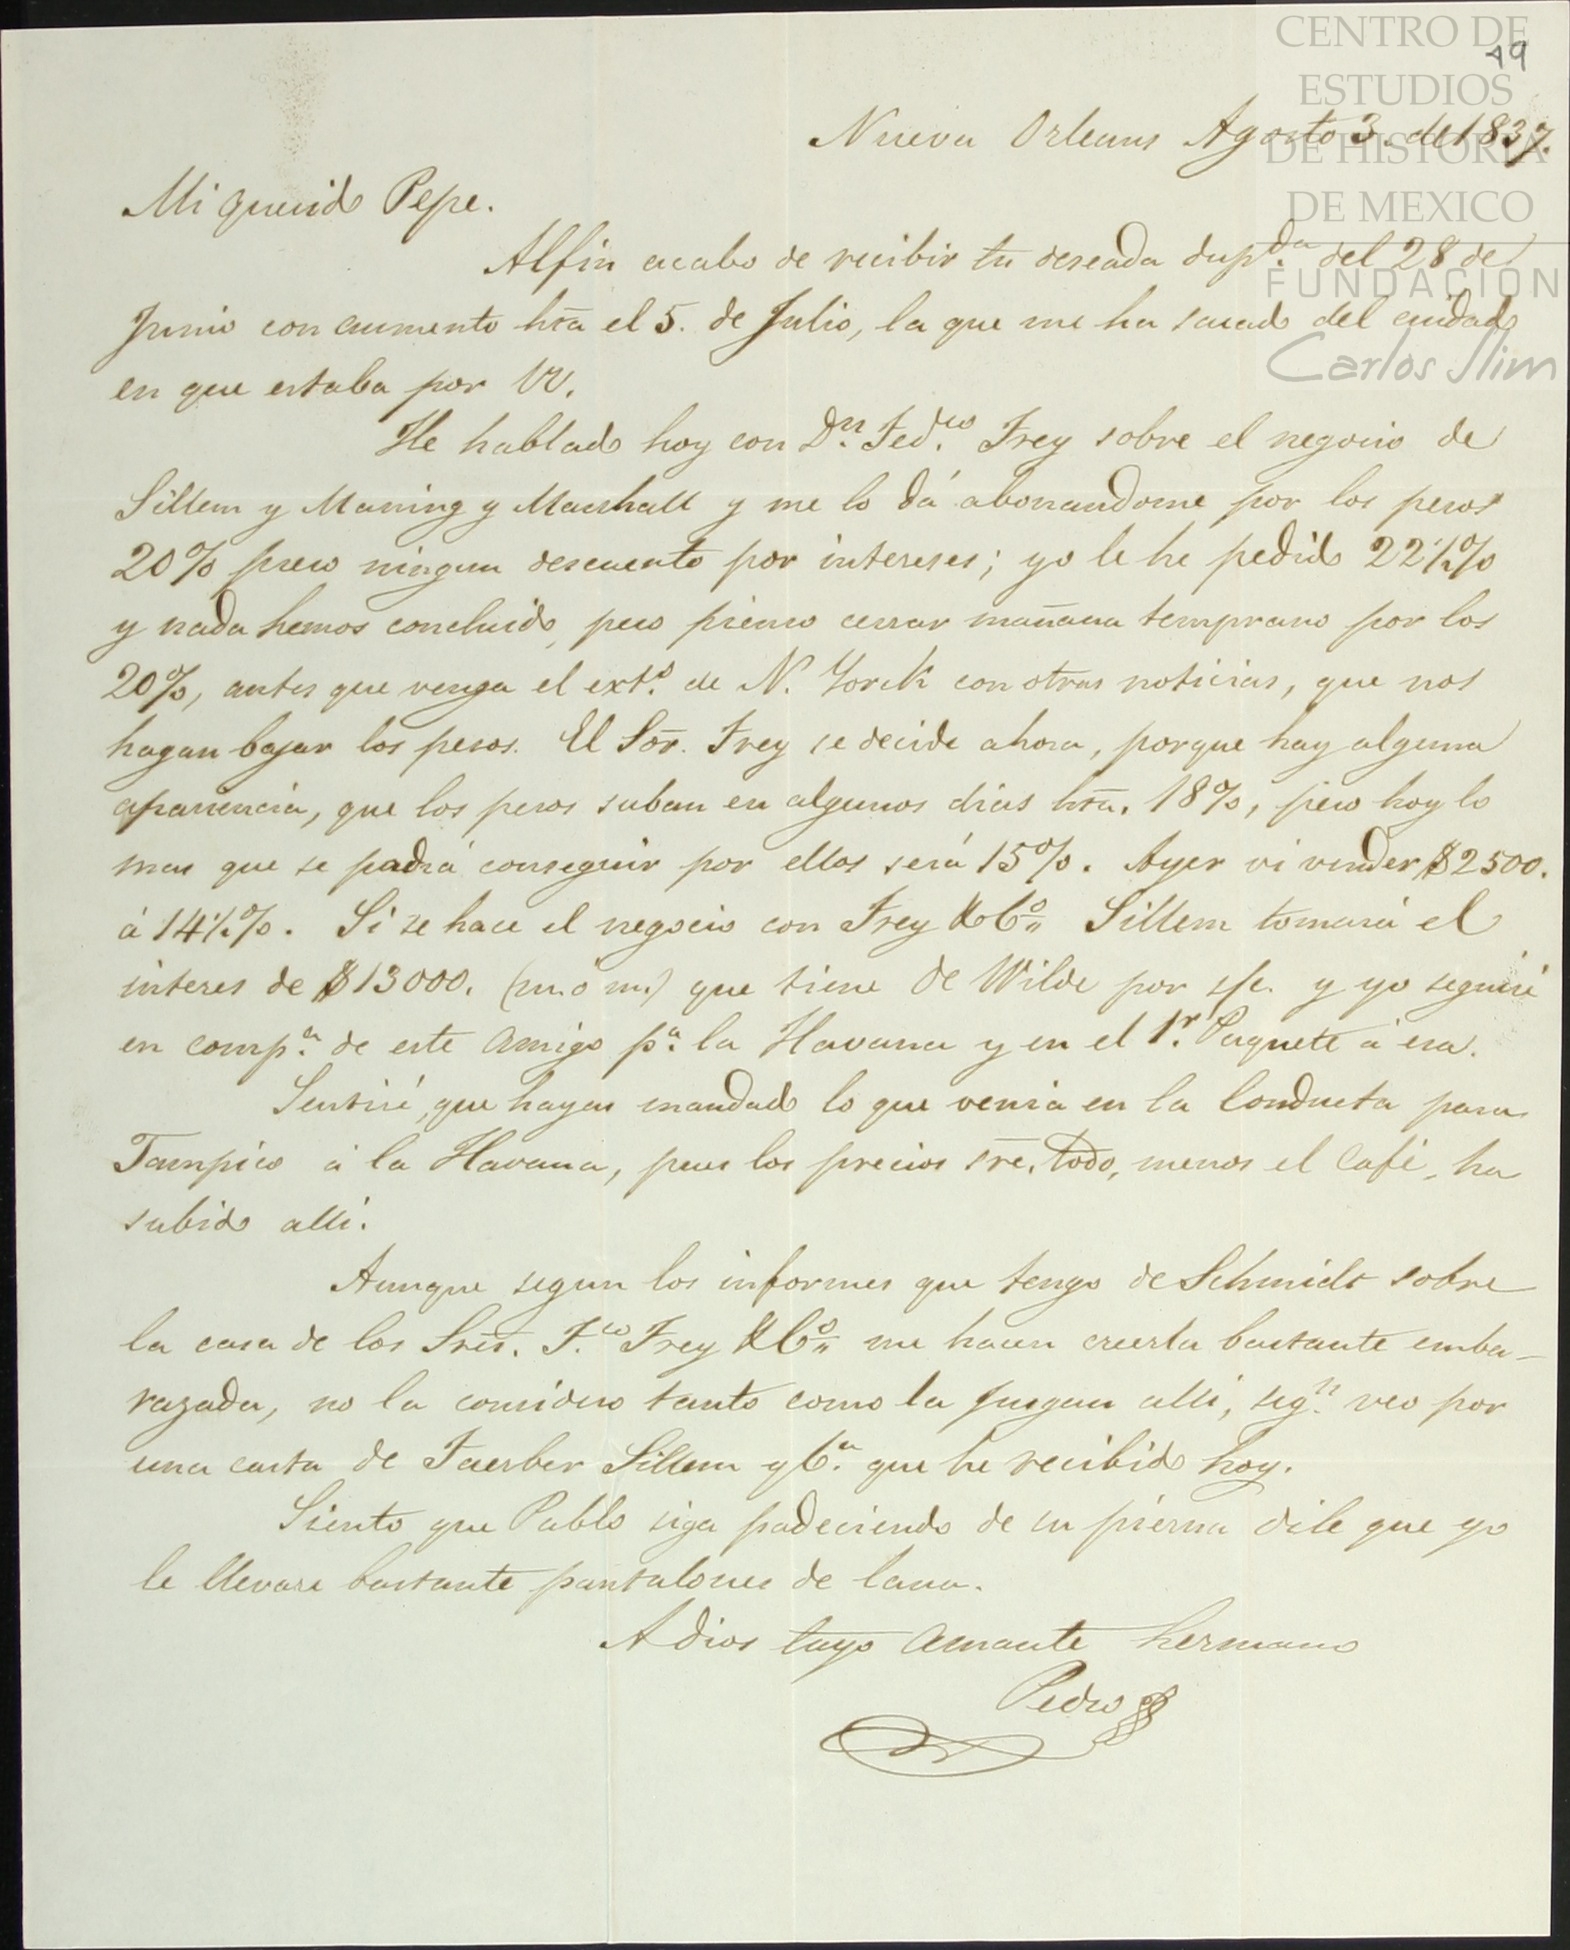 CENTRO DE
ESTUDIOS
DE HISTORIA
DE MEXICO
FUNDACIÓN
Carlos Slim
49
Nueva Orleans Agosto 3. de 1837.
Mi querido Pepe.
Alfin acabo de recibir tu deseada dupda. del 28 de
Junio con aumento hta el 5. de Julio, la que me ha sacado del cuidado
en que estaba por VV.
He hablado hoy con Dn. Fedco. Frey sobre el negocio de
Sillem y Maning y Marshall y me lo dá abonandome por los pesos
20% pero ningun descuento por intereses; yo le he pedido 22½%
y nada hemos concluido, pero pienso cerrar mañana temprano por los
20%, antes que venga el exto. de N. Yorck con otras noticias, que nos
hagan bajar los pesos. El Sor. Frey se decide ahora, porque hay alguna
apariencia, que los pesos suban en algunos dias hta. 18%, pero hoy lo
mas que se podrá conseguir por ellos será 15%. Ayer vi vender $2500.
á 14½%. Si se hace el negocio con Frey & Co. Sillem tomará el
interes de $13000. (m. ó m.) que tiene de Wilde por s/c. y yo seguiré
en compa. de este amigo pa. la Havana y en el 1r. Paquete á esa.
Sentiré, que hayan mandado lo que venia en la Conducta para
Tampico á la Havana, pues los precios sre. todo, menos el Café, ha
subido alli.
Aunque segun los informes que tengo de Schmidt sobre
la casa de los Sres. F.co Frey & Co. me hacen creerla bastante emba-
razada, no la considero tanto como la juzgan alli, segn. veo por
una carta de Faerber Sillem y Ca. que he recibido hoy.
Siento que Pablo siga padeciendo de su pierna dile que yo
le llevare bastante pantalones de lana.
Adios tuyo amante hermano
Pedro